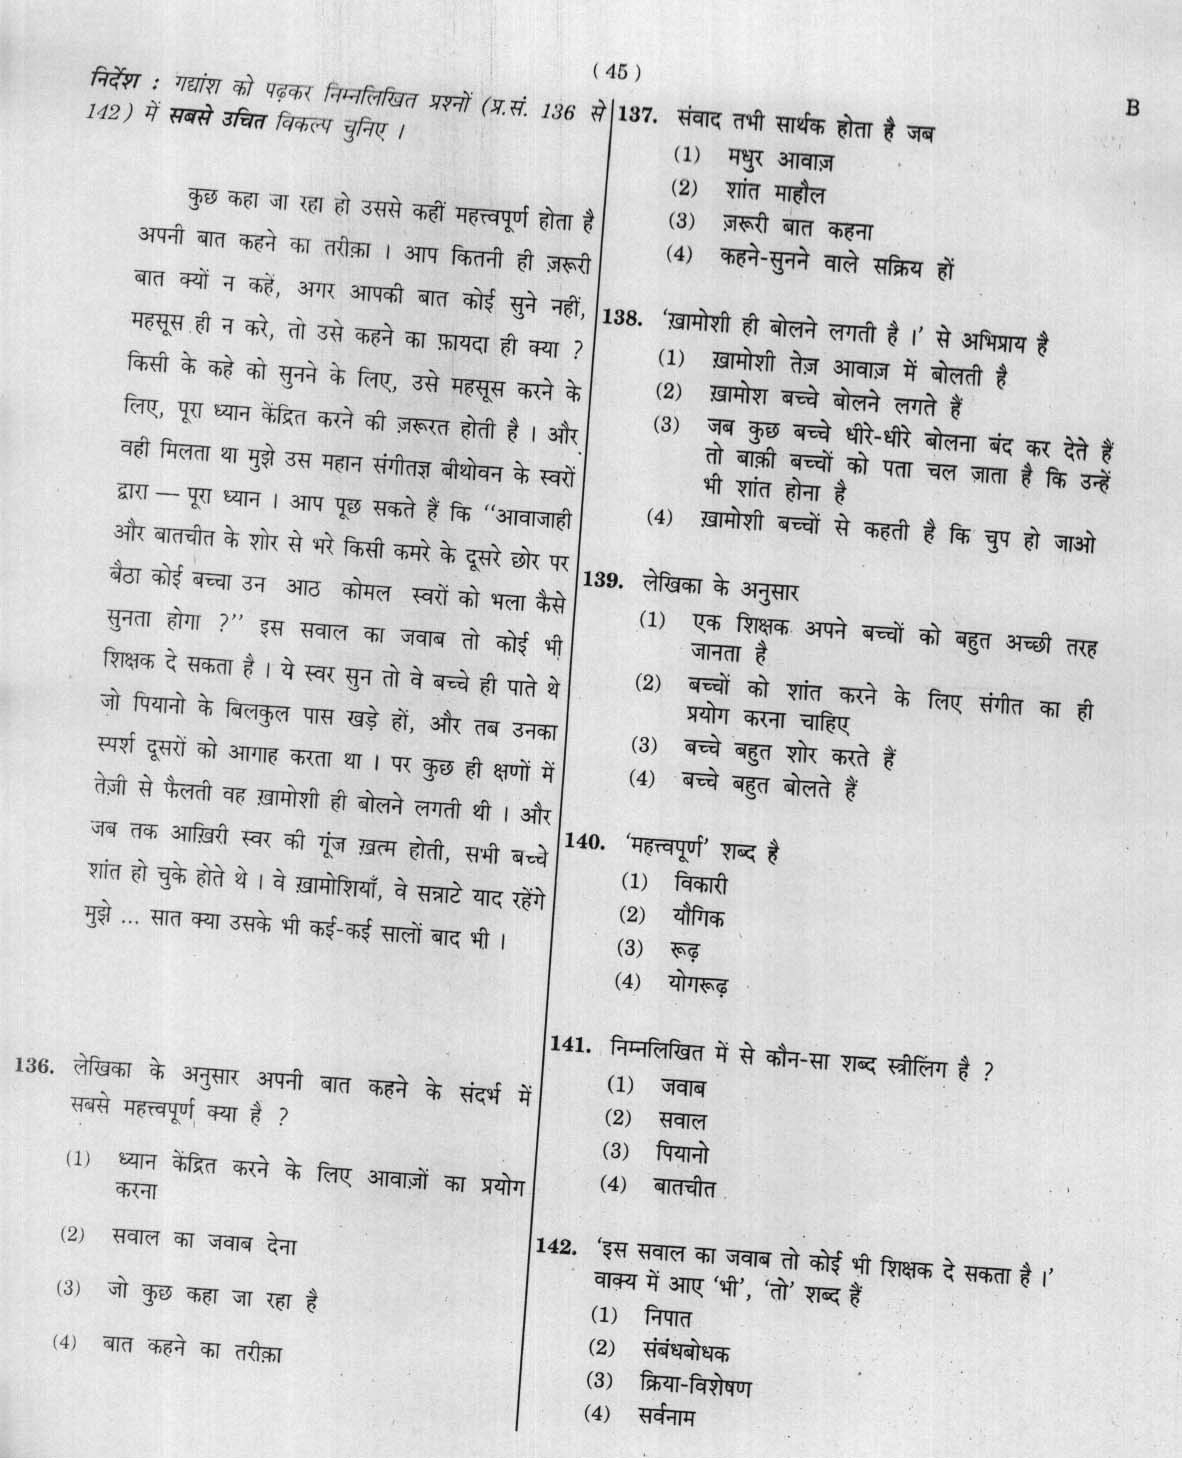 ( 45 )
B
निर्देश : गद्यांश को पढ़कर निम्नलिखित प्रश्नों (प्र.सं. 136 से
142) में सबसे उचित विकल्प चुनिए ।
कुछ कहा जा रहा हो उससे कहीं महत्त्वपूर्ण होता है
अपनी बात कहने का तरीक़ा । आप कितनी ही ज़रूरी
बात क्यों न कहें, अगर आपकी बात कोई सुने नहीं,
महसूस ही न करे, तो उसे कहने का फ़ायदा ही क्या ?
किसी के कहे को सुनने के लिए, उसे महसूस करने के
लिए, पूरा ध्यान केंद्रित करने की ज़रूरत होती है । और
वही मिलता था मुझे उस महान संगीतज्ञ बीथोवन के स्वरों
द्वारा — पूरा ध्यान । आप पूछ सकते हैं कि ‘‘आवाजाही
और बातचीत के शोर से भरे किसी कमरे के दूसरे छोर पर
बैठा कोई बच्चा उन आठ कोमल स्वरों को भला कैसे
सुनता होगा ?’’ इस सवाल का जवाब तो कोई भी
शिक्षक दे सकता है । ये स्वर सुन तो वे बच्चे ही पाते थे
जो पियानो के बिलकुल पास खड़े हों, और तब उनका
स्पर्श दूसरों को आगाह करता था । पर कुछ ही क्षणों में
तेज़ी से फैलती वह ख़ामोशी ही बोलने लगती थी । और
जब तक आख़िरी स्वर की गूंज ख़त्म होती, सभी बच्चे
शांत हो चुके होते थे । वे ख़ामोशियाँ, वे सन्नाटे याद रहेंगे
मुझे ... सात क्या उसके भी कई-कई सालों बाद भी ।
136. लेखिका के अनुसार अपनी बात कहने के संदर्भ में
सबसे महत्त्वपूर्ण क्या है ?
(1) ध्यान केंद्रित करने के लिए आवाज़ों का प्रयोग
करना
(2) सवाल का जवाब देना
(3) जो कुछ कहा जा रहा है
(4) बात कहने का तरीक़ा
137. संवाद तभी सार्थक होता है जब
(1) मधुर आवाज़
(2) शांत माहौल
(3) ज़रूरी बात कहना
(4) कहने-सुनने वाले सक्रिय हों
138. ‘ख़ामोशी ही बोलने लगती है ।’ से अभिप्राय है
(1) ख़ामोशी तेज़ आवाज़ में बोलती है
(2) ख़ामोश बच्चे बोलने लगते हैं
(3) जब कुछ बच्चे धीरे-धीरे बोलना बंद कर देते हैं
तो बाक़ी बच्चों को पता चल जाता है कि उन्हें
भी शांत होना है
(4) ख़ामोशी बच्चों से कहती है कि चुप हो जाओ
139. लेखिका के अनुसार
(1) एक शिक्षक अपने बच्चों को बहुत अच्छी तरह
जानता है
(2) बच्चों को शांत करने के लिए संगीत का ही
प्रयोग करना चाहिए
(3) बच्चे बहुत शोर करते हैं
(4) बच्चे बहुत बोलते हैं
140. ‘महत्त्वपूर्ण’ शब्द है
(1) विकारी
(2) यौगिक
(3) रूढ़
(4) योगरूढ़
141. निम्नलिखित में से कौन-सा शब्द स्त्रीलिंग है ?
(1) जवाब
(2) सवाल
(3) पियानो
(4) बातचीत
142. ‘इस सवाल का जवाब तो कोई भी शिक्षक दे सकता है ।’
वाक्य में आए ‘भी’, ‘तो’ शब्द हैं
(1) निपात
(2) संबंधबोधक
(3) क्रिया-विशेषण
(4) सर्वनाम